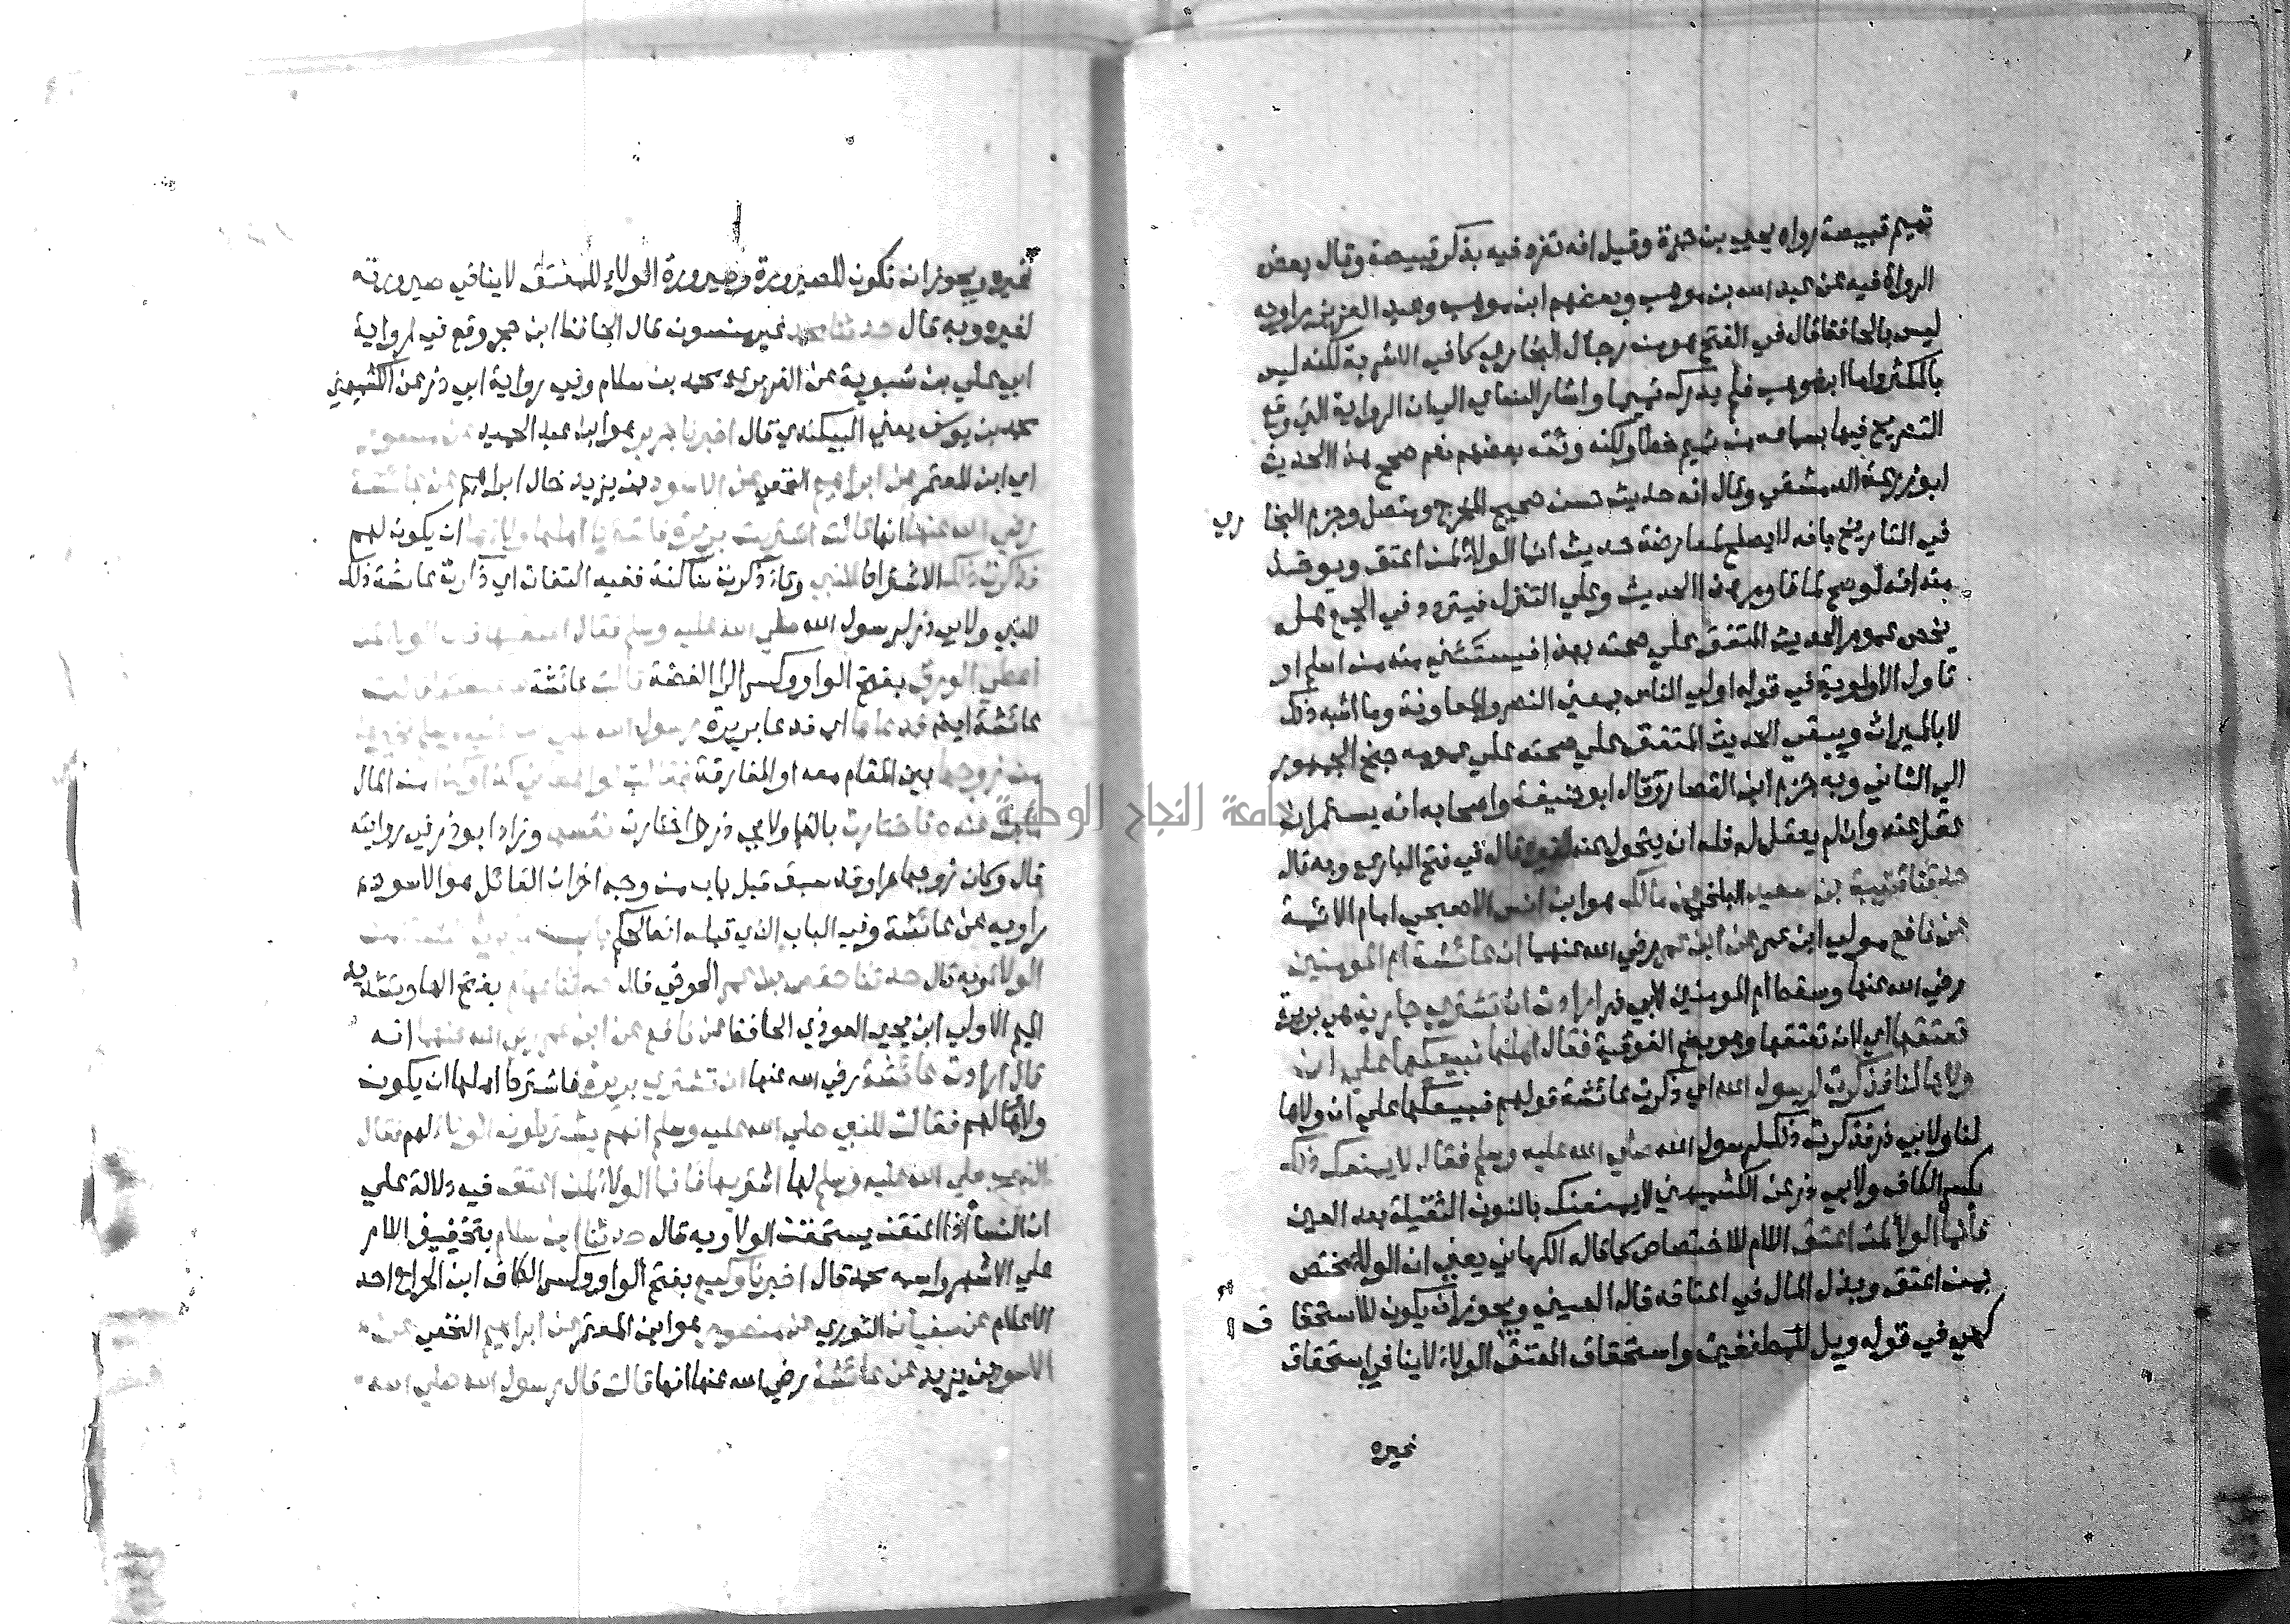 تميم قبيصة رواه يحيي بن حمزة وقيل انه تفرد فيه بذكر قبيصة وقال بعض
الرواة فيه عن عبد الله بن موهب وبعضهم ابن موهب وعبد العزيز راويه
ليس بالحافظ قال في الفتح هو من رجال البخاري كما في الاشربة لكنه ليس
بالمكثر واما ابن موهب فلم يدرك تميما واشار النسائي الي ان الرواية التي وقع
التصريح فيها بسماعه من تميم خطا ولكنه وثقه بعضهم نعم صحح هذا الحديث
ابو زرعة الدمشقي وقال انه حديث حسن صحيح المخرج متصل وجزم البخا ري
في التاريخ بانه لا يصلح لمعارضة حديث انما الولا لمن اعتق ويوخذ
منه انه لو صح لما قاوم هذا الحديث وعلي التنزل فيتردد في الجمع هل
يخص عموم الحديث المتفق علي صحته بهذا فيستثني منه من اسلم او
تاول الاولوية في قوله اولي الناس بمعني النصر والمعاونة وما اشبه ذلك
لا بالميراث ويبقي الحديث المتفق علي صحته علي عمومه جنح الجمهور
الي الثاني وبه جزم ابن القصار وقال ابو حنيفة واصحابه انه يستمر ان
عقل عنه وان لم يعقل له فله ان يتحول عنه لغيره قاله في فتح الباري وبه قال
حدثنا قتيبة بن سعيد البلخي عن مالك هو ابن انس الاصبحي امام الائمة
عن نافع مولي ابن عمر عن ابن عمر رضي الله عنهما ان عائشة ام المومنين
رضي الله عنها وسقط ام المومنين لابي ذر ارادت ان تشتري جارية هي بريرة
تعتقها اي لان تعتقها وهو بضم الفوقية فقال اهلها نبيعكها علي ان
ولاها لنا فذكرت لرسول الله اي ذكرت عائشة قولهم نبيعكها علي ان ولاها
لنا ولابي ذر فذكرت ذلك لرسول الله صلي الله عليه وسلم فقال لا يمنعك ذلك
بكسر الكاف ولابي ذر عن الكشميهني لا يمنعنك بالنون الثقيلة بعد العين
فانما الولا لمن اعتق اللام للاختصاص كما قاله الكرماني يعني ان الولا مختص
بمن اعتق وبذل المال في اعتاقه قال العيني ويجوز ان يكون للاستحقا ق
كهي في قوله ويل للمطففين واستحقاق المعتق الولاء لا ينافي استحقاق
غيره
غيره ويجوز ان تكون للصيرورة وصيرورة الولاء للمعتق لا ينافي صيرورته
لغيره وبه قال حدثنا محمد غير منسوب قال الحافظ ابن حجر وقع في رواية
ابي علي بن شبوية عن الفربري محمد بن سلام وفي رواية ابي ذر عن الكشميهني
محمد بن يوسف يعني البيكندي قال اخبرنا جرير هو ابن عبد الحميد عن منصور
اي ابن المعتمر عن ابراهيم النخعي عن الاسود بن يزيد خال ابراهيم عن عائشة
رضي الله عنها انها قالت اشتريت بريرة فاشترط اهلها ولاءها ان يكون لهم
فذكرت ذلك الاشتراط للنبي وتاء ذكرت ساكنة ففيه التفات اي ذكرت عائشة ذلك
للنبي ولابي ذر لرسول الله صلي الله عليه وسلم فقال اعتقيها فان الولا لمن
اعطي الورق بفتح الواو وكسر الرا الفضة قالت عائشة فاعتقتها قالت
عائشة ايضا فدعاها اي فدعا بريرة رسول الله صلي الله عليه وسلم فخيرها
من زوجها بين المقام معه او المفارقة فقالت لو اعطاني كذا وكذا من المال
ما بت عنده فاختارت بالفا ولابي ذر واختارت نفسها وزاد ابو ذر في روايته
قال وكان زوجها حرا وقد سبق قبل باب من وجه اخر ان القائل هو الاسود
راويه عن عائشة وفي الباب الذي قبله انه الحكم باب ما يرث النساء من
الولا وبه قال حدثنا حفص بن عمر الحوضي قال حدثنا همام بفتح الها وتشديد
الميم الاولي ابن يحيي العوذي الحافظ عن نافع عن ابن عمر رضي الله عنهما انه
قال ارادت عائشة رضي الله عنها ان تشتري بريرة فاشترط اهلها ان يكون
ولاها لهم فقالت للنبي صلي الله عليه وسلم انهم يشترطون الولاء لهم فقال
النبي صلي الله عليه وسلم لها اشتريها فانما الولا لمن اعتق فيه دلالة علي
ان النسا اذا اعتقن يستحققن الولا وبه قال حدثنا ابن سلام بتخفيف اللام
علي الاشهر واسمه محمد قال اخبرنا وكيع بفتح الواو وكسر الكاف ابن الجراح احد
الاعلام عن سفيان الثوري عن منصور هو ابن المعتمر عن ابراهيم النخعي عن
الاسود بن يزيد عن عائشة رضي الله عنها انها قالت قال رسول الله صلي الله
جامعة النجاح الوطنية